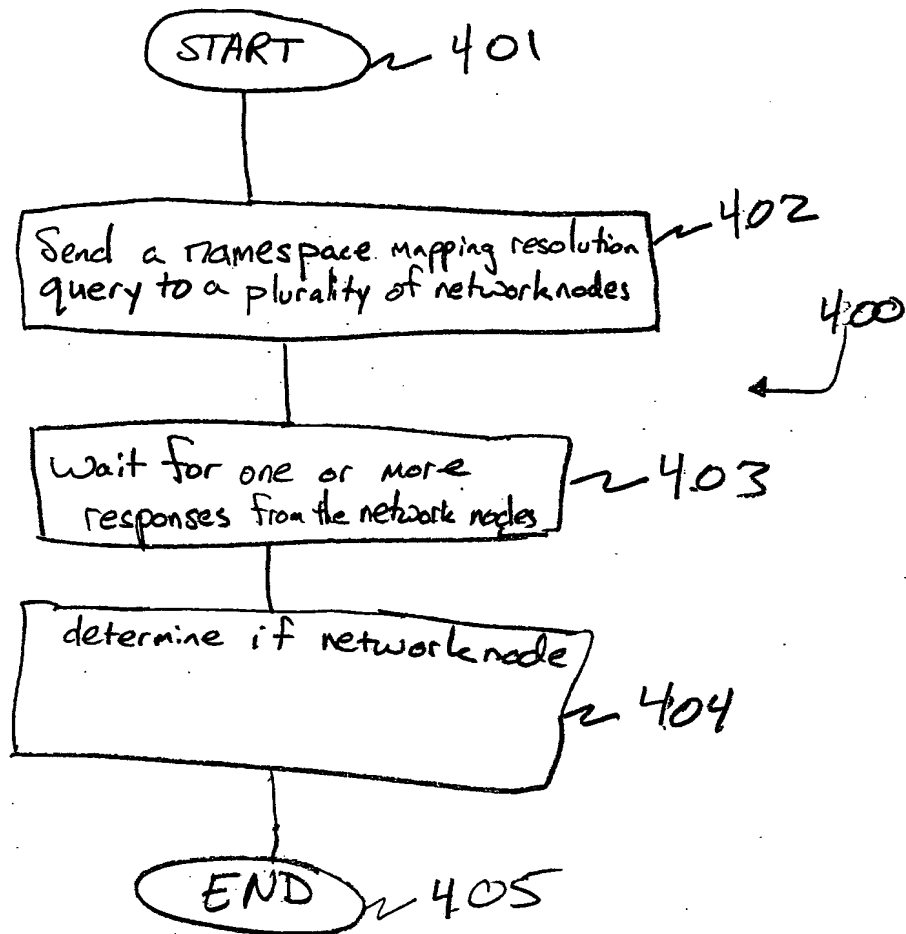 START 401
Send a namespace mapping resolution 402
query to a plurality of network nodes
400
Wait for one or more 403
responses from the network nodes
determine if network node
404
END 405